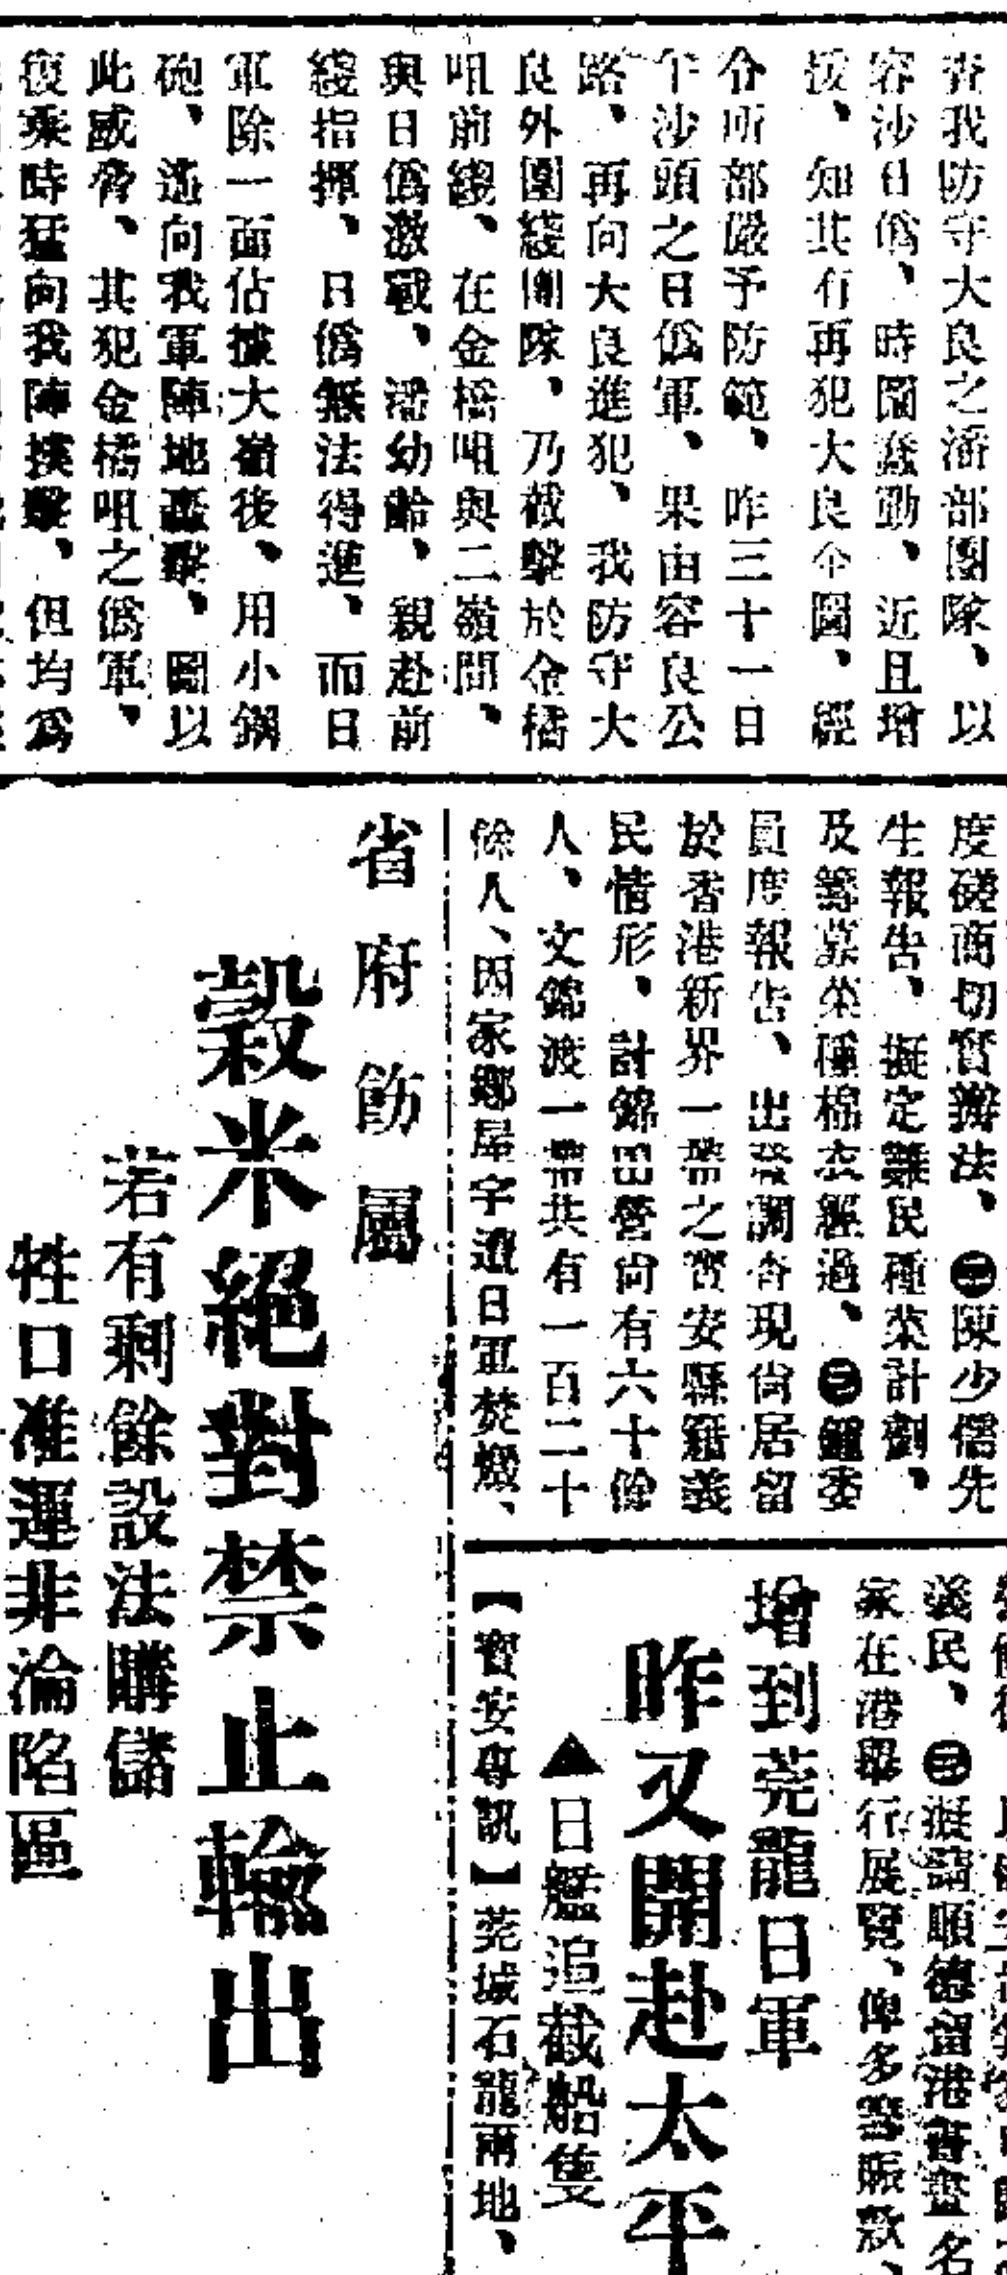 查我防守大良之潘部團隊、以
容沙日僞、時圖蠢動、近且增
援、知其有再犯大良企圖、經
令所部嚴予防範、昨三十一日
午沙頭之日僞軍、果由容良公
路、再向大良進犯、我防守大
良外圍綫團隊、乃截擊於金橘
咀前綫、在金橘咀與二嶺間、
與日僞激戰、潘幼齡、親赴前
綫指揮、日僞無法得進、而日
軍除一面佔據大嶺後、用小鋼
砲、遙向我軍陣地轟擊、圖以
此威脅、其犯金橘咀之僞軍、
復乘時猛向我陣撲擊、但均爲
度磋商切實辦法、㊁陳少儒先
生報告、擬定難民種菜計劃、
及籌募菜種棉衣經過、㊂鍾委
員度報告、出發調查現尙居留
於香港新界一帶之寶安縣籍義
民情形、計錦田營尙有六十餘
人、文錦渡一帶共有一百二十
餘人、因家鄉屋宇遭日軍焚燬、
義民、㊂擬請順德留港書畫名
家在港舉行展覽、俾多籌賑款、
增到莞龍日軍
昨又開赴太平
▲日艦追截船隻
【寶安專訊】莞城石龍兩地、
省府飭屬
穀米絕對禁止輸出
若有剩餘設法購儲
牲口准運非淪陷區